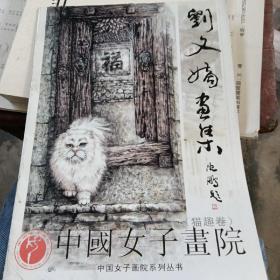 劉文嫡畫集
沈鹏題
福
(猫趣卷)
中國女子畫院
中国女子画院系列丛书